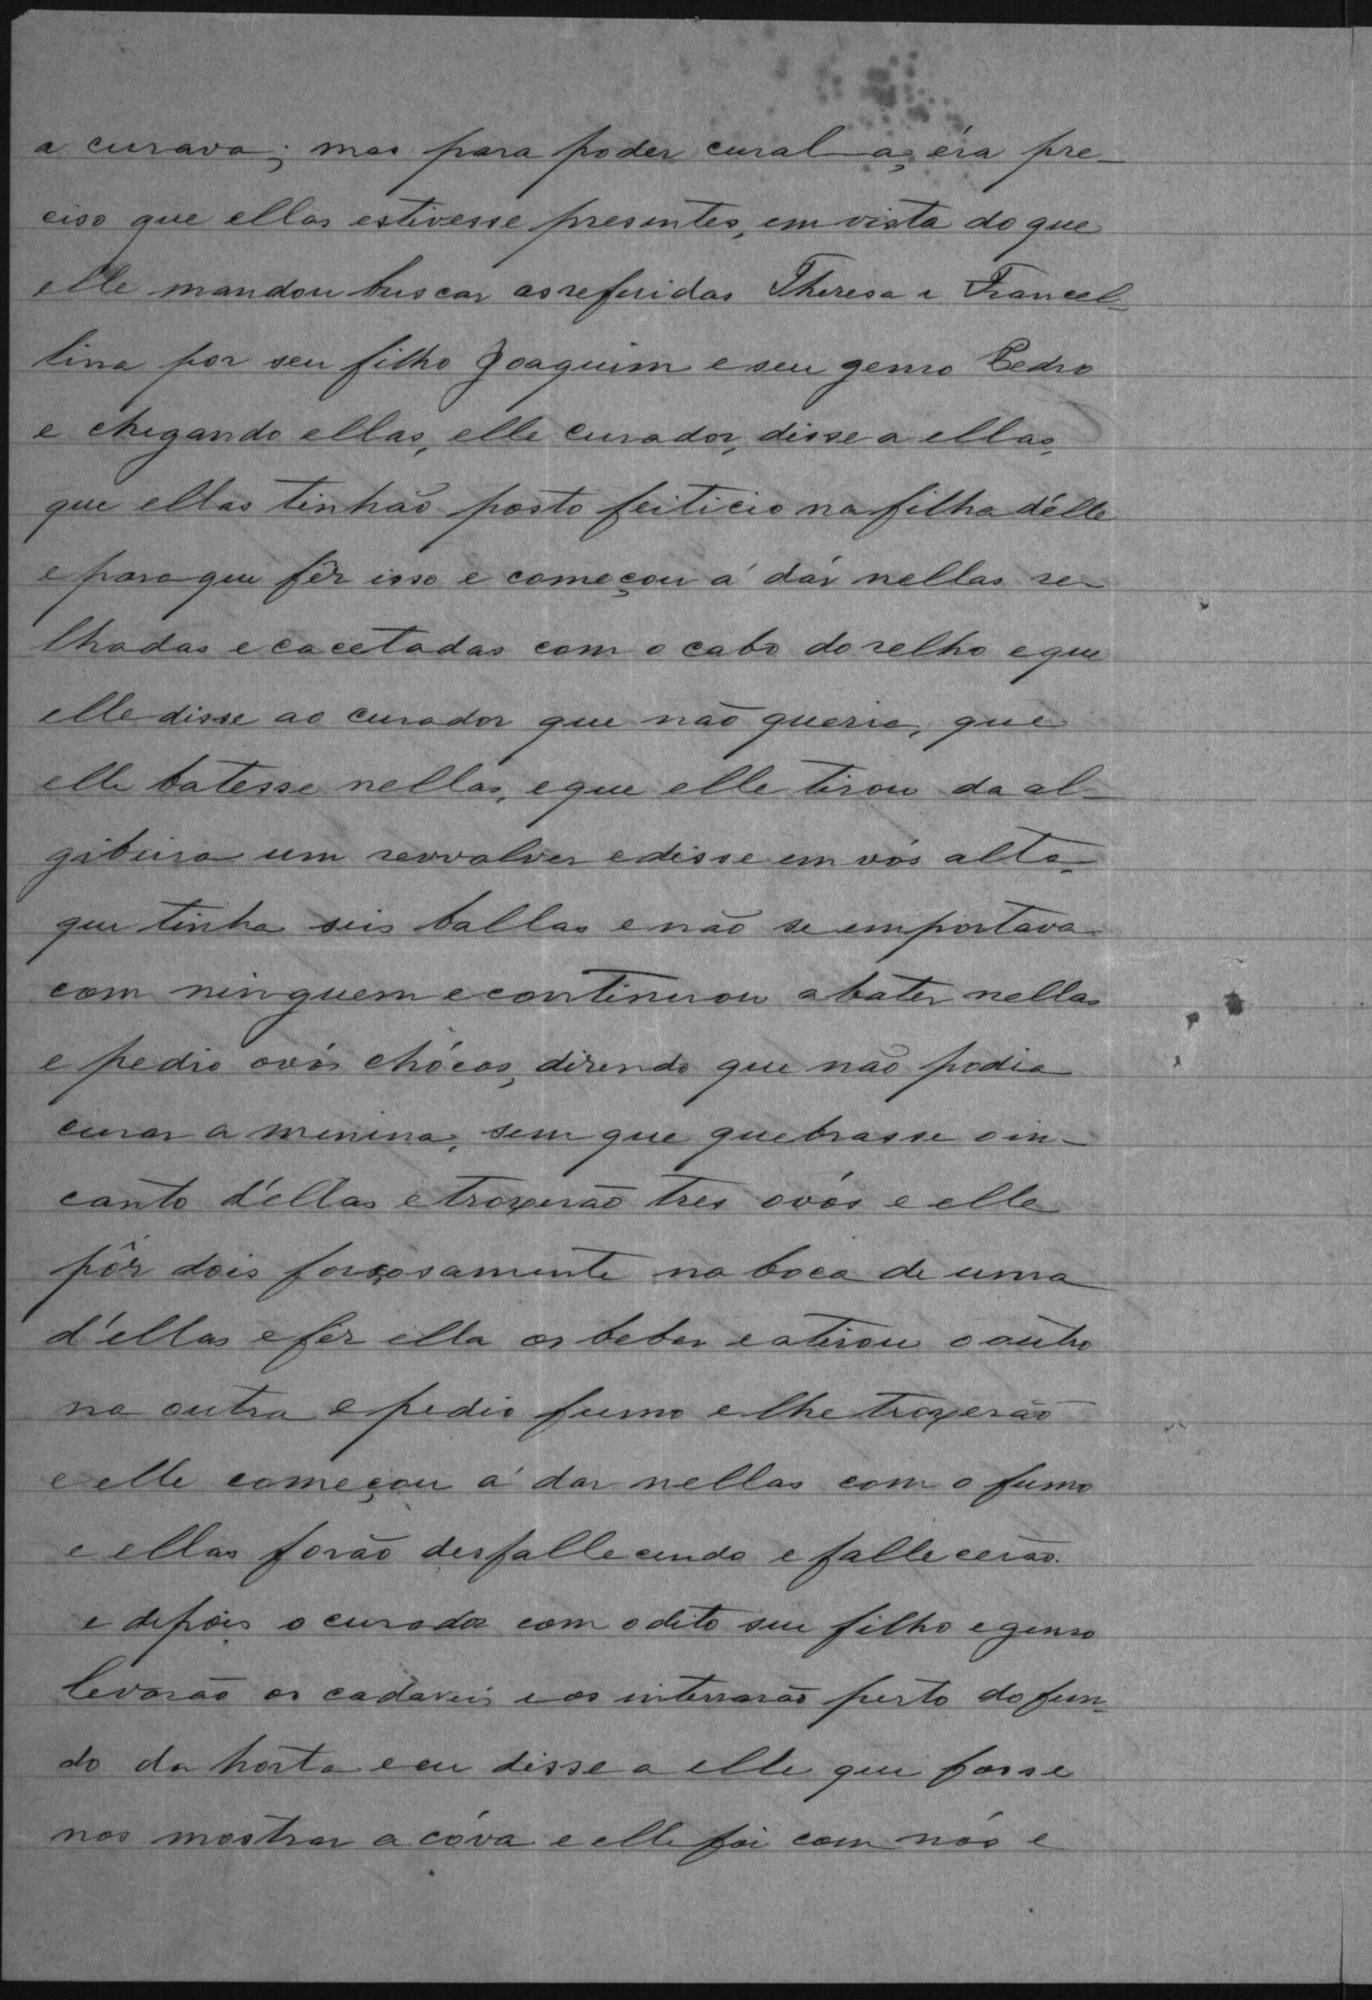 a curava; mas para poder cural-a, éra pre-
ciso que ellas estivesse presentes, em vista do que
elle mandou buscar as referidas Theresa e Francel-
lina por seu filho Joaquim e seu genro Pedro
e chegando ellas, elle curador, disse a ellas,
que ellas tinhão posto feiticio na filha d'elle
e para que fêz isso e começou á dár nellas re-
lhadas e cacetadas com o cabo do relho e que
elle disse ao curador que não queria, que
elle batesse nellas, e que elle tirou da al-
gibeira um revvolver e disse em vós alta,
que tinha seis ballas e não se emportava
com ninguem e continuou a bater nellas
e pedio ovós chócos, dizendo que não podia
curar a menina, sem que quebrasse o in-
canto d'ellas e troxerão tres ovós e elle
pôz dois forçosamente na boca de uma
d'ellas e fêz ella os beber e atirou o outro
na outra e pedio fumo e lhe troxerão
e elle começou á dar nellas com o fumo
e ellas forão desfallecendo e fallecerão.
e depois o curador com o dito seu filho e genro
levarão os cadaveis e os interrarão perto do fun-
do da horta e eu disse a elle que fosse
nos mostrar a cóva e elle foi com nós e